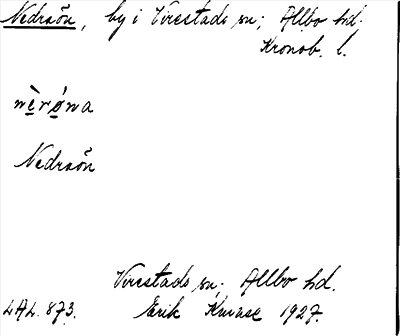 Nedraön, by i Virestads sn; Allbo hd.
Kronob. l.
nèrøna
Nedraön
Virestads sn; Allbo hd.
LAL. 873. Erik 1927